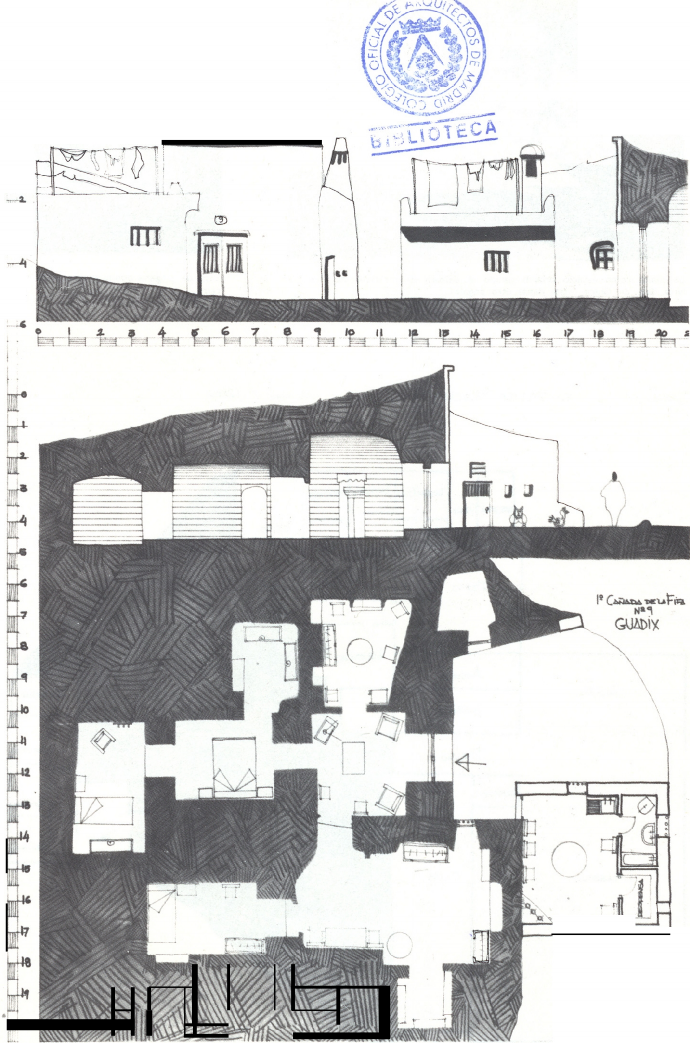 COLEGIO OFICIAL DE ARQUITECTOS DE MADRID
BIBLIOTECA
9
2
4
6
0 1 2 3 4 5 6 7 8 9 10 11 12 13 14 15 16 17 18 19 20
0
1
2
3
4
5
6
7
8
9
10
11
12
13
14
15
16
17
18
19
1ª CAÑADA DE LA
Nº 9
GUADIX
DESPENSA